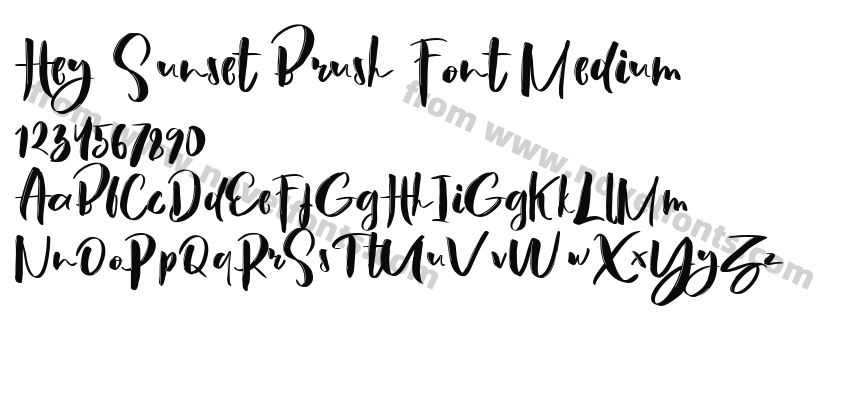 Hey Sunset Brush Font Medium
1234567890
AaBbCcDdEeFfGgHhIiGgKkLlMm
NnOoPpQqRrSsTtUuVvWwXxYyZz
from www.novelfonts.com
from www.novelfonts.com